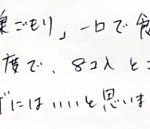 巣ごもり」一口で食
度で、8コ入とコ
げにはいいいと思いま